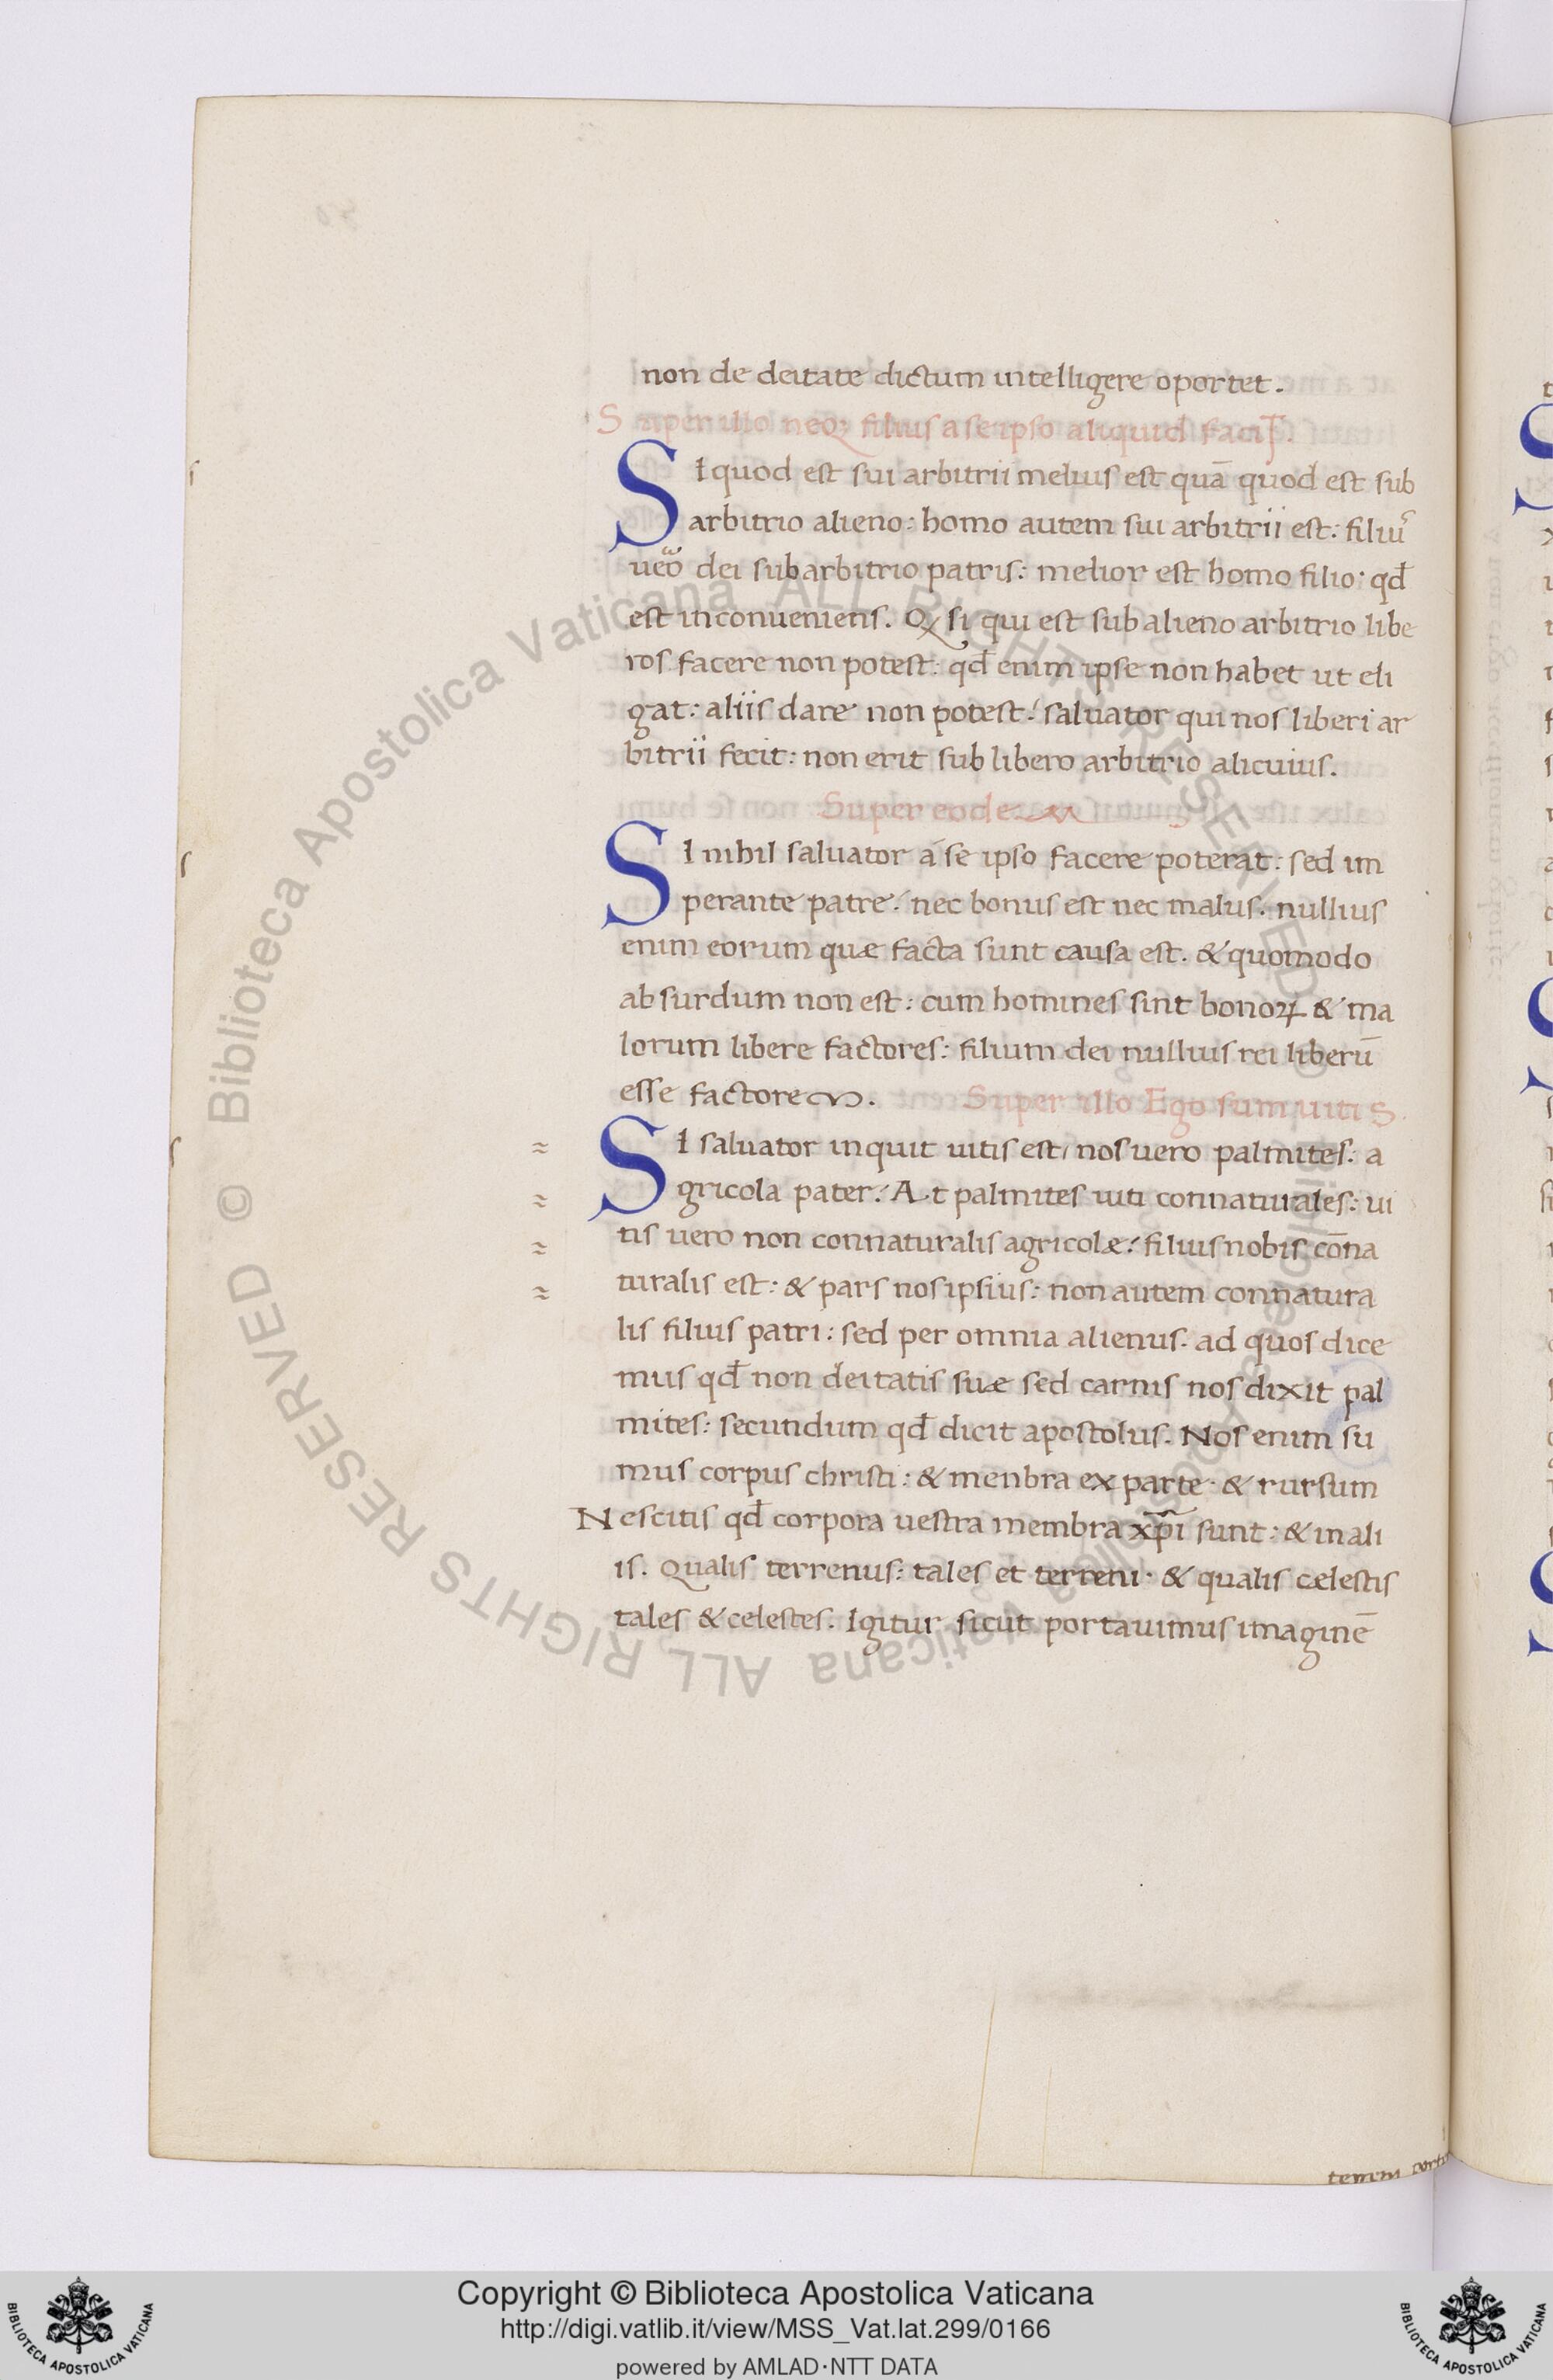 non de deitate dictum intelligere oportet.
Super illo neq; filius a se ipso aliquid facit.
SI quod est sui arbitrii melius est quā quod est sub
arbitrio alieno: homo autem sui arbitrii est: filius
uero dei sub arbitrio patris: melior est homo filio: qđ
est inconueniens. Q si qui est sub alieno arbitrio libe
ros facere non potest: qđ enim ipse non habet ut eli
gat: aliis dare non potest: saluator qui nos liberi ar
bitrii fecit: non erit sub libero arbitrio alicuius.
Super eodem
SI nihil saluator a se ipso facere poterat: sed im
perante patre: nec bonus est nec malus. nullius
enim eorum quæ facta sunt causa est. & quomodo
absurdum non est: cum homines sint bonoꝝ & ma
lorum libere factores: filium dei nullius rei liberū
esse factorem. Super illo Ego sum uitis.
SI saluator inquit uitis est, nos uero palmites: a
gricola pater: At palmites uiti connaturales: ui
tis uero non connaturalis agricolæ: filius nobis cōna
turalis est: & pars nos ipsius: non autem connatura
lis filius patri: sed per omnia alienus. ad quos dice
mus qđ non deitatis suæ sed carnis nos dixit pal
mites: secundum qđ dicit apostolus. Nos enim su
mus corpus christi: & menbra ex parte. & rursum
Nescitis qđ corpora uestra membra xp̄i sunt: & in ali
is. Qualis terrenus: tales et terreni. & qualis cælestis
tales & celestes. Igitur sicut portauimus imaginē
Copyright © Biblioteca Apostolica Vaticana
http://digi.vatlib.it/view/MSS_Vat.lat.299/0166
powered by AMLAD·NTT DATA
BIBLIOTECA APOSTOLICA VATICANA
BIBLIOTECA APOSTOLICA VATICANA
© Biblioteca Apostolica Vaticana ALL RIGHTS RESERVED
© Biblioteca Apostolica Vaticana ALL RIGHTS RESERVED